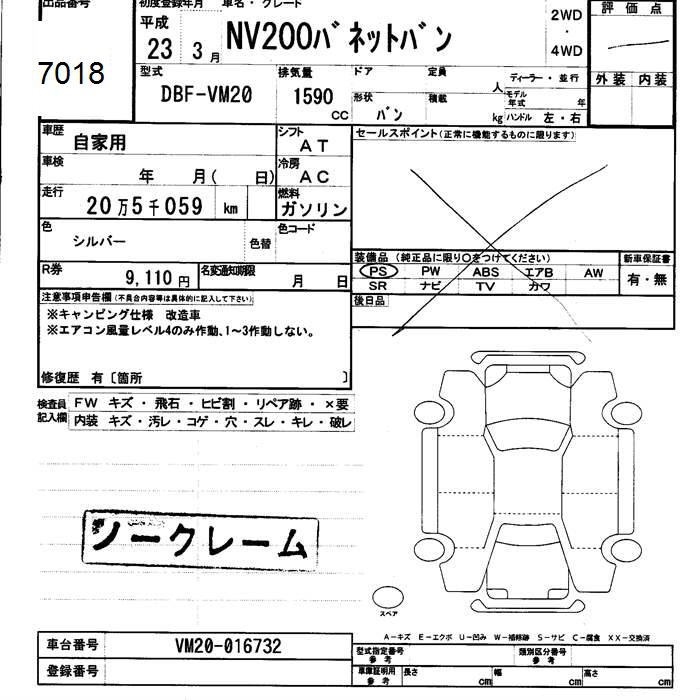 出品番号
7018
初度登録年月
平成
23 3月
車名・グレード
NV200バネットバン
2WD
・
4WD
評価点
外装 内装
型式
DBF-VM20
排気量
1590
CC
ドア 定員
人
形状 積載
バン
kg
ディーラー・並行
モデル年式 年
ハンドル 左・右
車歴
自家用
シフト
AT
車検
年 月( 日)
冷房
AC
走行
20万5千059 km
燃料
ガソリン
色
シルバー
色替
色コード
R券
9,110円
名変通知期限
月 日
セールスポイント(正常に機能するものに限ります)
装備品(純正品に限り○をつけてください)
PS PW ABS エアB AW
SR ナビ TV カワ
新車保証書
有・無
後日品
注意事項申告欄(不具合内容等は具体的に記入して下さい)
※キャンピング仕様 改造車
※エアコン風量レベル4のみ作動、1~3作動しない。
修復歴 有〔箇所 〕
検査員記入欄
FW キズ・飛石・ヒビ割・リペア跡・×要
内装 キズ・汚レ・コゲ・穴・スレ・キレ・破レ
ノークレーム
スペア
A-キズ E-エクボ U-凹み W-補修跡 S-サビ C-腐食 XX-交換済
車台番号 VM20-016732
登録番号
型式指定番号
参考
類別区分番号
参考
車庫証明用
参考
長さ cm 幅 cm 高さ cm